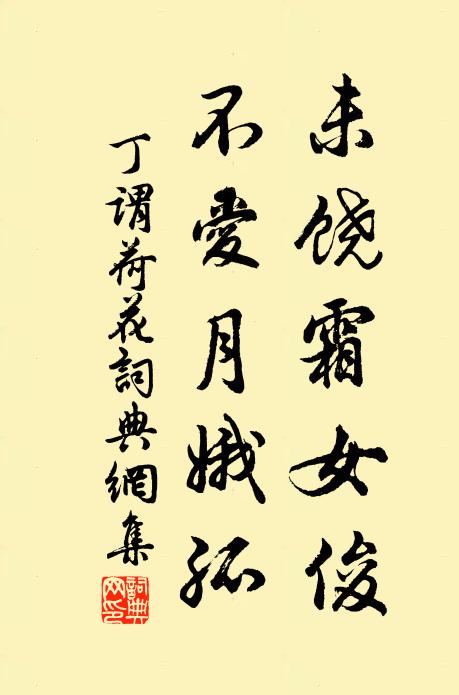 未饶霜女俊
不愛月娥孤
丁谓荷花詞典網集
詞典网印